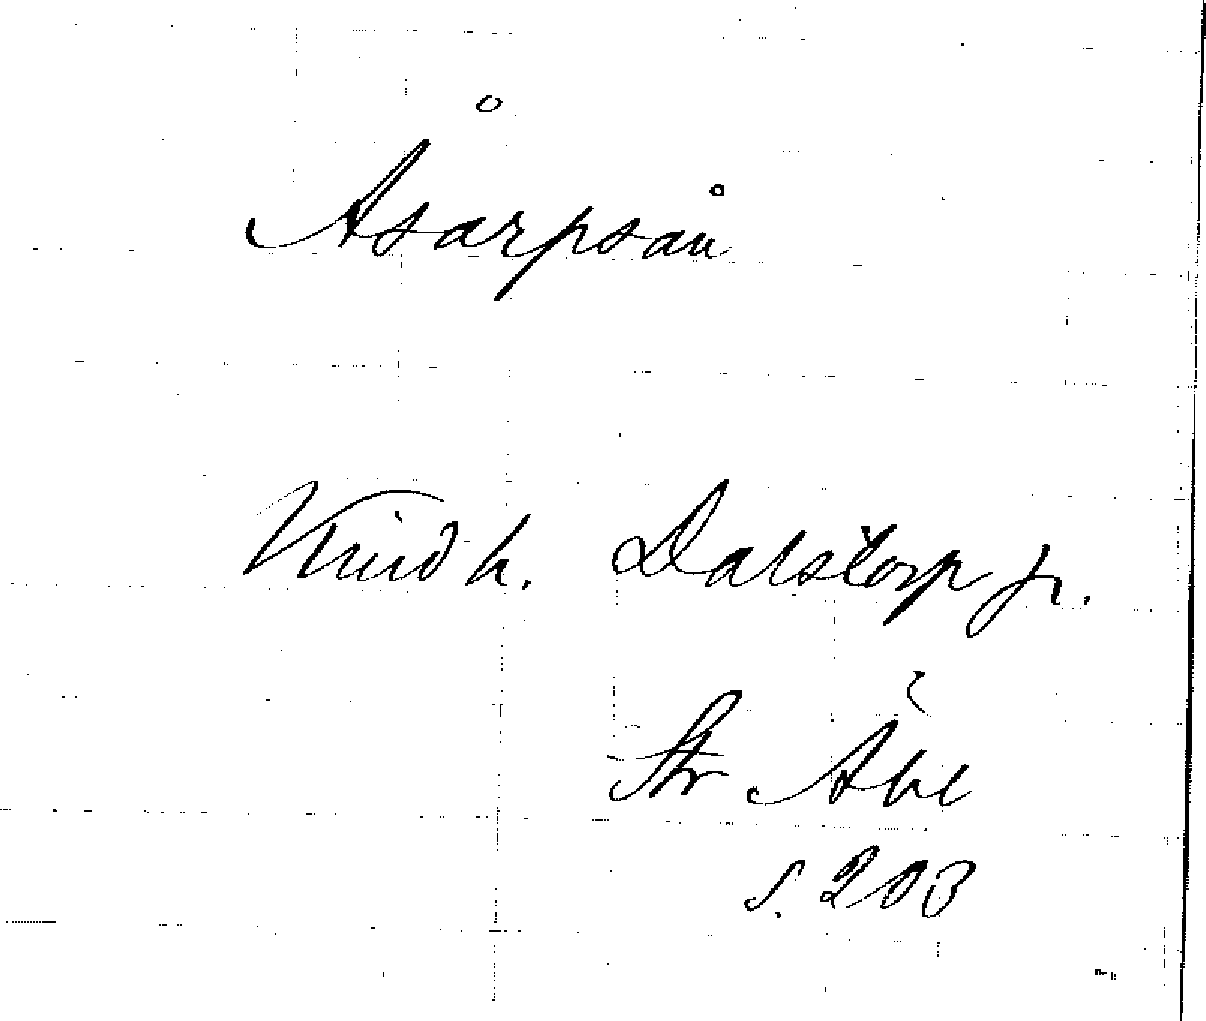 Åsarpsån
Kind h. Dalstorp
Str
s. 203